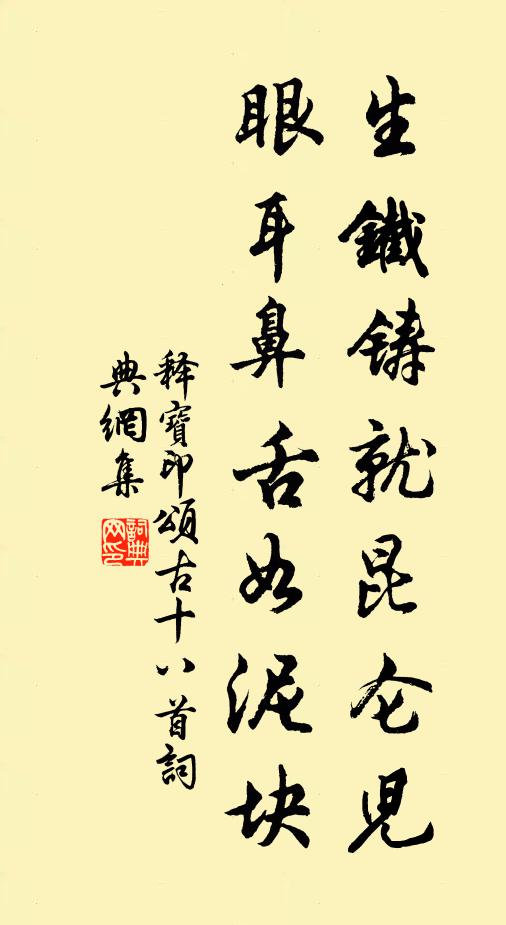 生鐵鑄就昆仑兒
眼耳鼻舌如泥块
释寶印頌古十八首詞
典網集
詞典网印